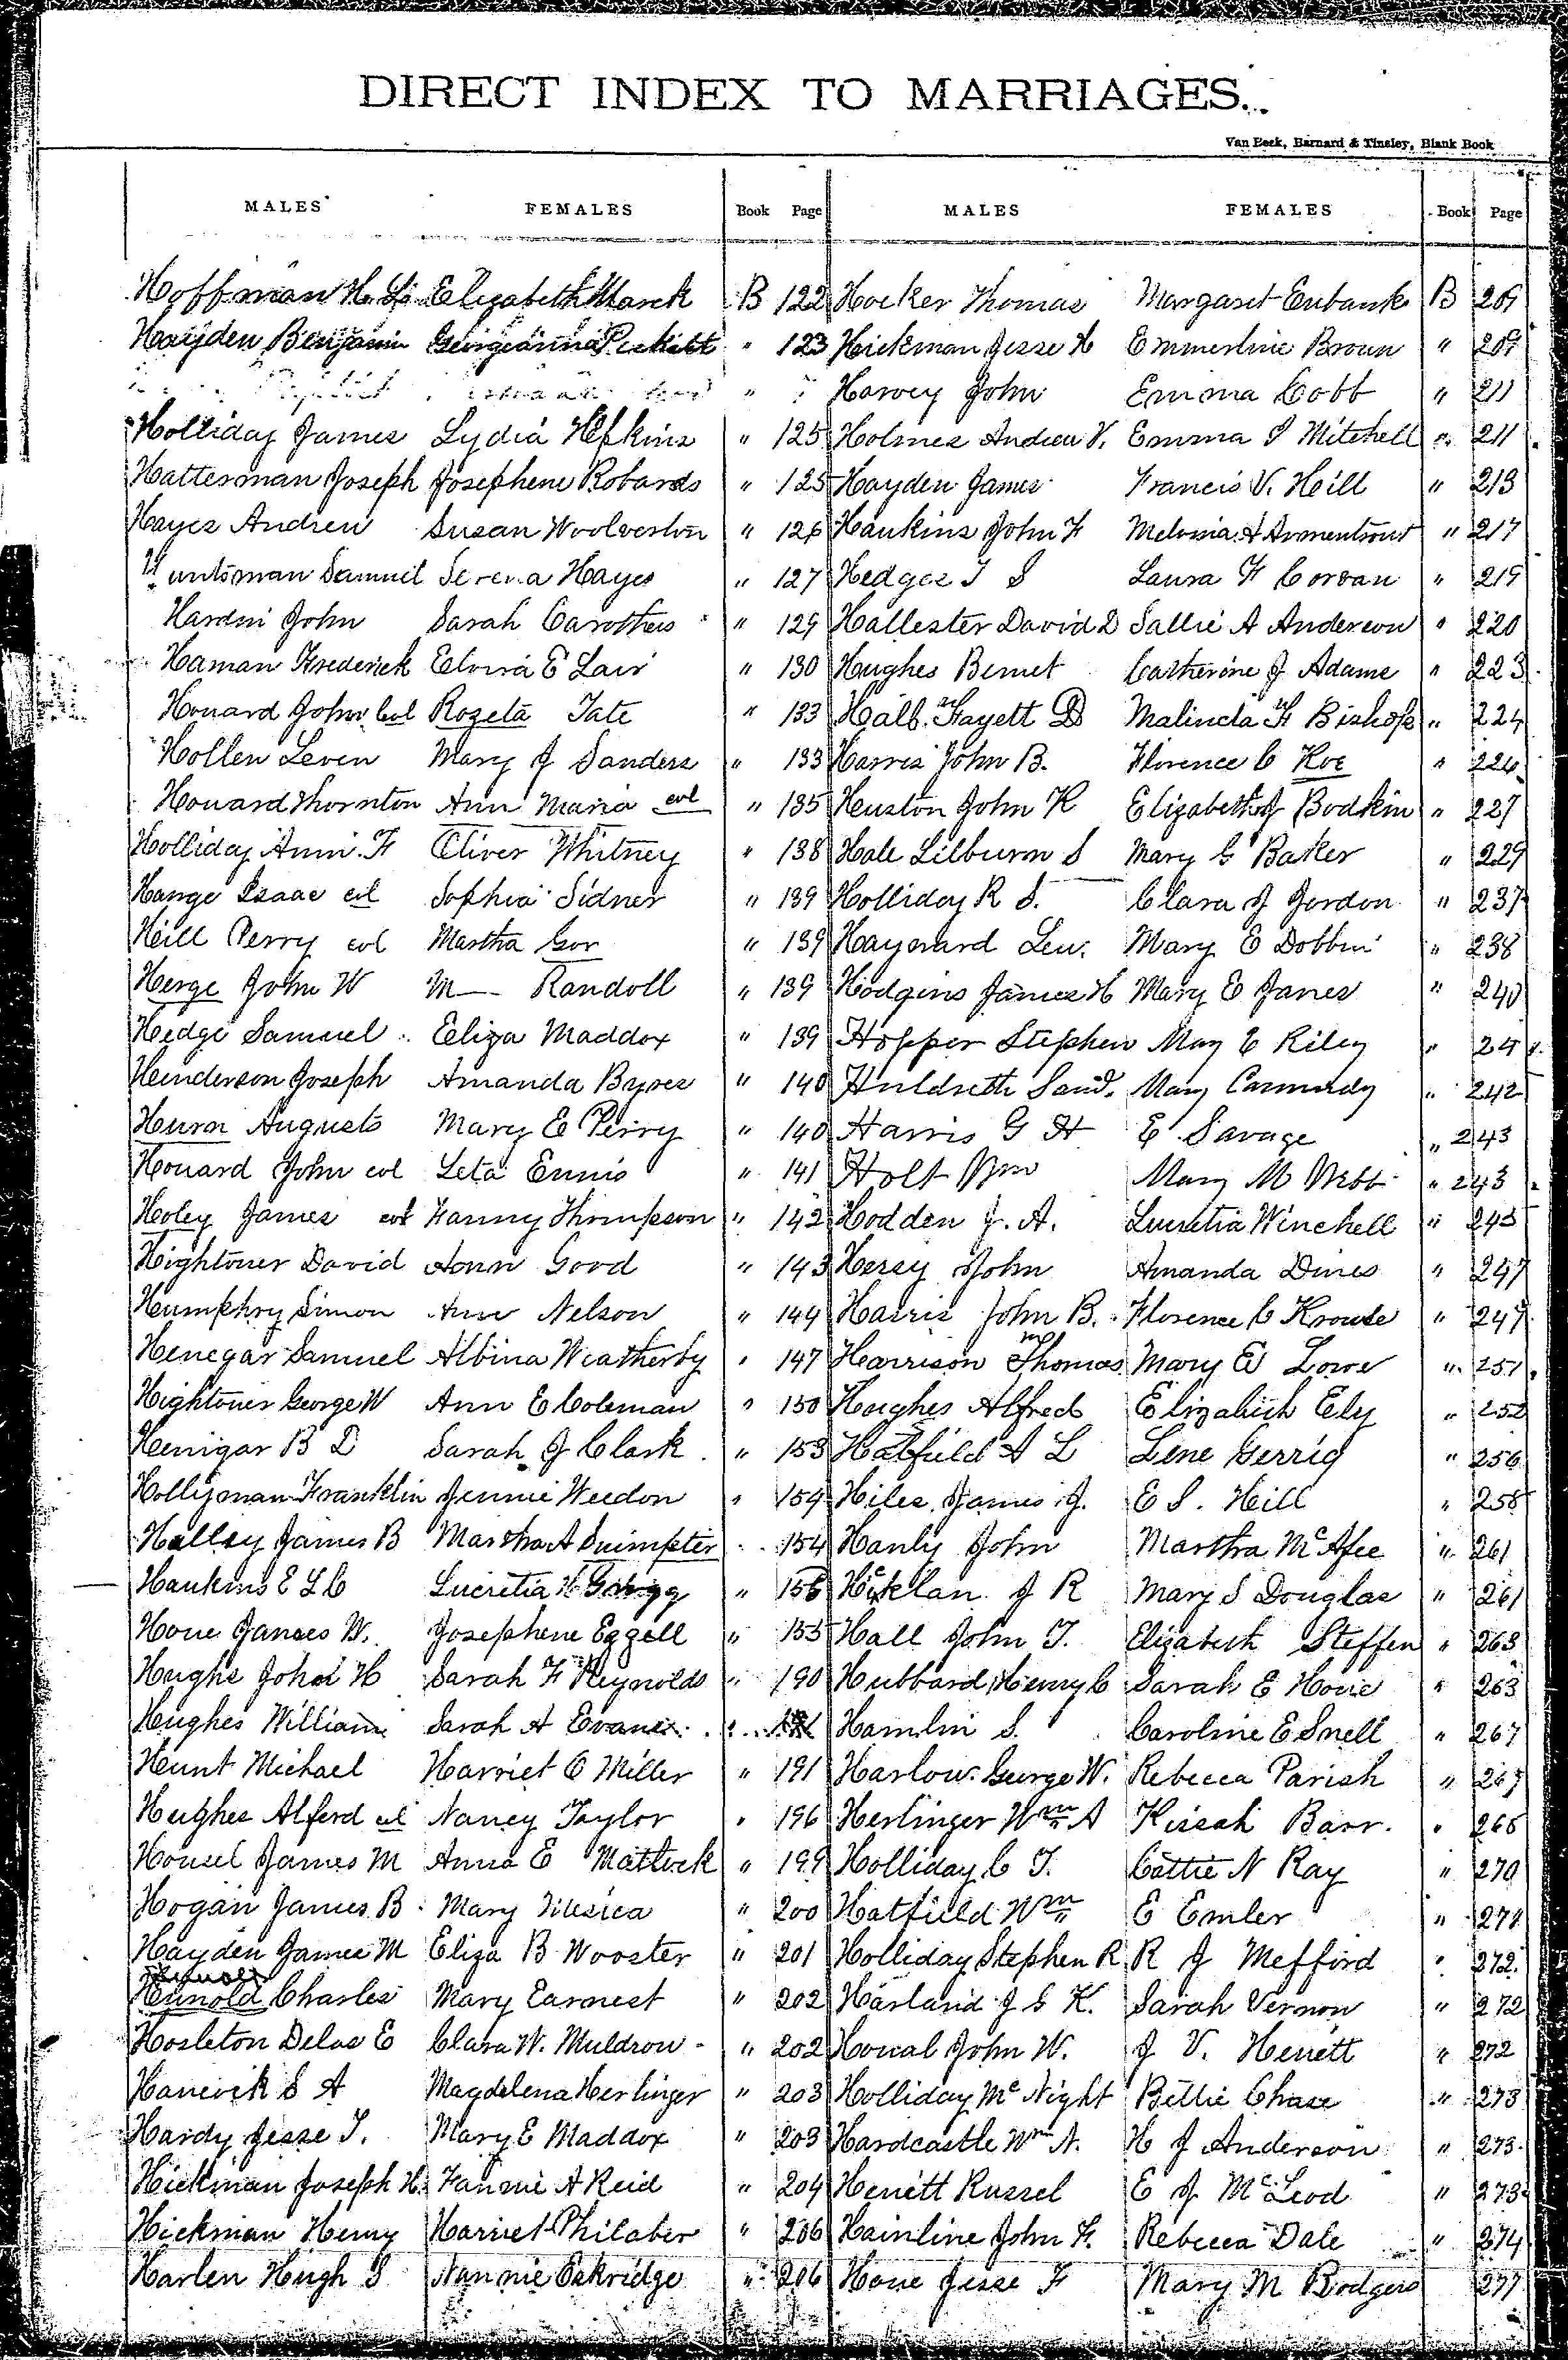 DIRECT INDEX TO MARRIAGES.
Van Beek, Barnard & Tinsley, Blank Book
MALES FEMALES Book Page MALES FEMALES Book Page
Hoffman H. L. Elizabeth Marck B 122 Hocker Thomas Margaret Eubank B 209
Hayden Benjamin Georgeanna " 123 Hickman Jesse H Emmerline Brown " 209
" Harvey John Emma Cobb " 211
Holliday James Lydia Hopkins " 125 Holmes Andrew V. Emma J Mitchell " 211
Hatterman Joseph Josephene Robards " 125 Hayden James Francis V. Hill " 213
Hayes Andrew Susan Woolverton " 126 Hawkins John F Melvina A Armentrout " 217
Huntsman Samuel Serena Hayes " 127 Hedges T S Laura F Corvan " 219
Hardin John Sarah Carothers " 129 Hallester David D Sallie A Anderson " 220
Haman Frederick Elvira E Lair " 130 Hughes Bennet Catherine J Adams " 223
Howard John Col Rozeta Tate " 133 Halb. Fayett D Malinda F Bishop " 224
Hollen Leven Mary J Sanders " 133 Harris John B. Florence C Kroe " 224
Howard Thornton Ann Maria col " 135 Huston John K Elizabeth J Bodkin " 227
Holliday Ann. F Oliver Whitney " 138 Hale Lilburn S Mary C Baker " 229
Hange Isaac col Sophia Sidner " 139 Holliday R S. Clara J Jordon " 237
Hill Perry col Martha Gor " 139 Hayward Lew. Mary E Dobbin " 238
Herge John W M— Randoll " 139 Hodgins James H Mary E Janes " 240
Hedge Samuel Eliza Maddox " 139 Hopper Stephen Mary E Riley " 24
Henderson Joseph Amanda Byres " 140 Huldreth Sand. Mary " 242
Hurn Augusts Mary E Perry " 140 Harris G H E Savage " 243
Howard John col Leta Ennis " 141 Holt Wm Mary M Webb " 243
Holey James col Fanny Thompson " 142 Hodden J. A. Lucretia Winchell " 245
Hightower David Ann Good " 143 Hersy John Amanda Dines " 247
Humphry Simon Ann Nelson " 144 Harris John B. Florence C Krowse " 247
Henegar Samuel Albina Weatherby " 147 Harrison Thomas Mary E Lowe " 251
Hightower George W Ann E Coleman " 150 Hughes Alfred Elizabeth Ely " 252
Henigar B D Sarah J Clark " 153 Hatfield A L Lene Gerrig " 256
Hollyman Franklin Jennie Weedon " 154 Hiles James J. E S. Hill " 258
Halley James B Martha A Suimpter 154 Hanly John Martha McAfee " 261
Hawkins E L C Lucretia H Gregg " 156 Hicklan J R Mary S Douglas " 261
Howe James W. Josephene Ezzell " 155 Hall John T. Elizabeth Steffen " 263
Hughs John H Sarah F Reynolds " 190 Hubbard Henry C Sarah E Howe " 263
Hughes William Sarah A Evans Hamlin S. Caroline E Snell " 267
Hunt Michael Harriet C Miller " 191 Harlow George W. Rebecca Parish " 267
Hughes Alferd col Nancy Taylor " 196 Herlinger Wm A Kissah Barr. " 268
Housel James M Anna E Matlock " 199 Holliday C T. Cattie N Ray " 270
Hogan James B Mary " 200 Hatfield Wm E Emler " 271
Hayden James M Eliza B Wooster " 201 Holliday Stephen R R J Mefford " 272
Hunold Charles Mary Earnest " 202 Harland J S K. Sarah Vernon " 272
Hosleton Delas E Clara W. Muldrow " 202 Howal John W. J V. Hewett " 272
Hancock S A Magdelena Herlinger " 203 Holliday McNight Bettie Chase " 273
Hardy Jesse T. Mary E Maddox " 203 Hardcastle Wm N. H J Anderson " 273
Hickman Joseph H. Fannie A Reid " 204 Hewett Russel E J McLeod " 273
Hickman Henry Harriet Philaber " 206 Hainline John F. Rebecca Dale " 274
Harlen Hugh S Nannie Eskridge " 206 Howe Jesse F Mary M Rodgers 277